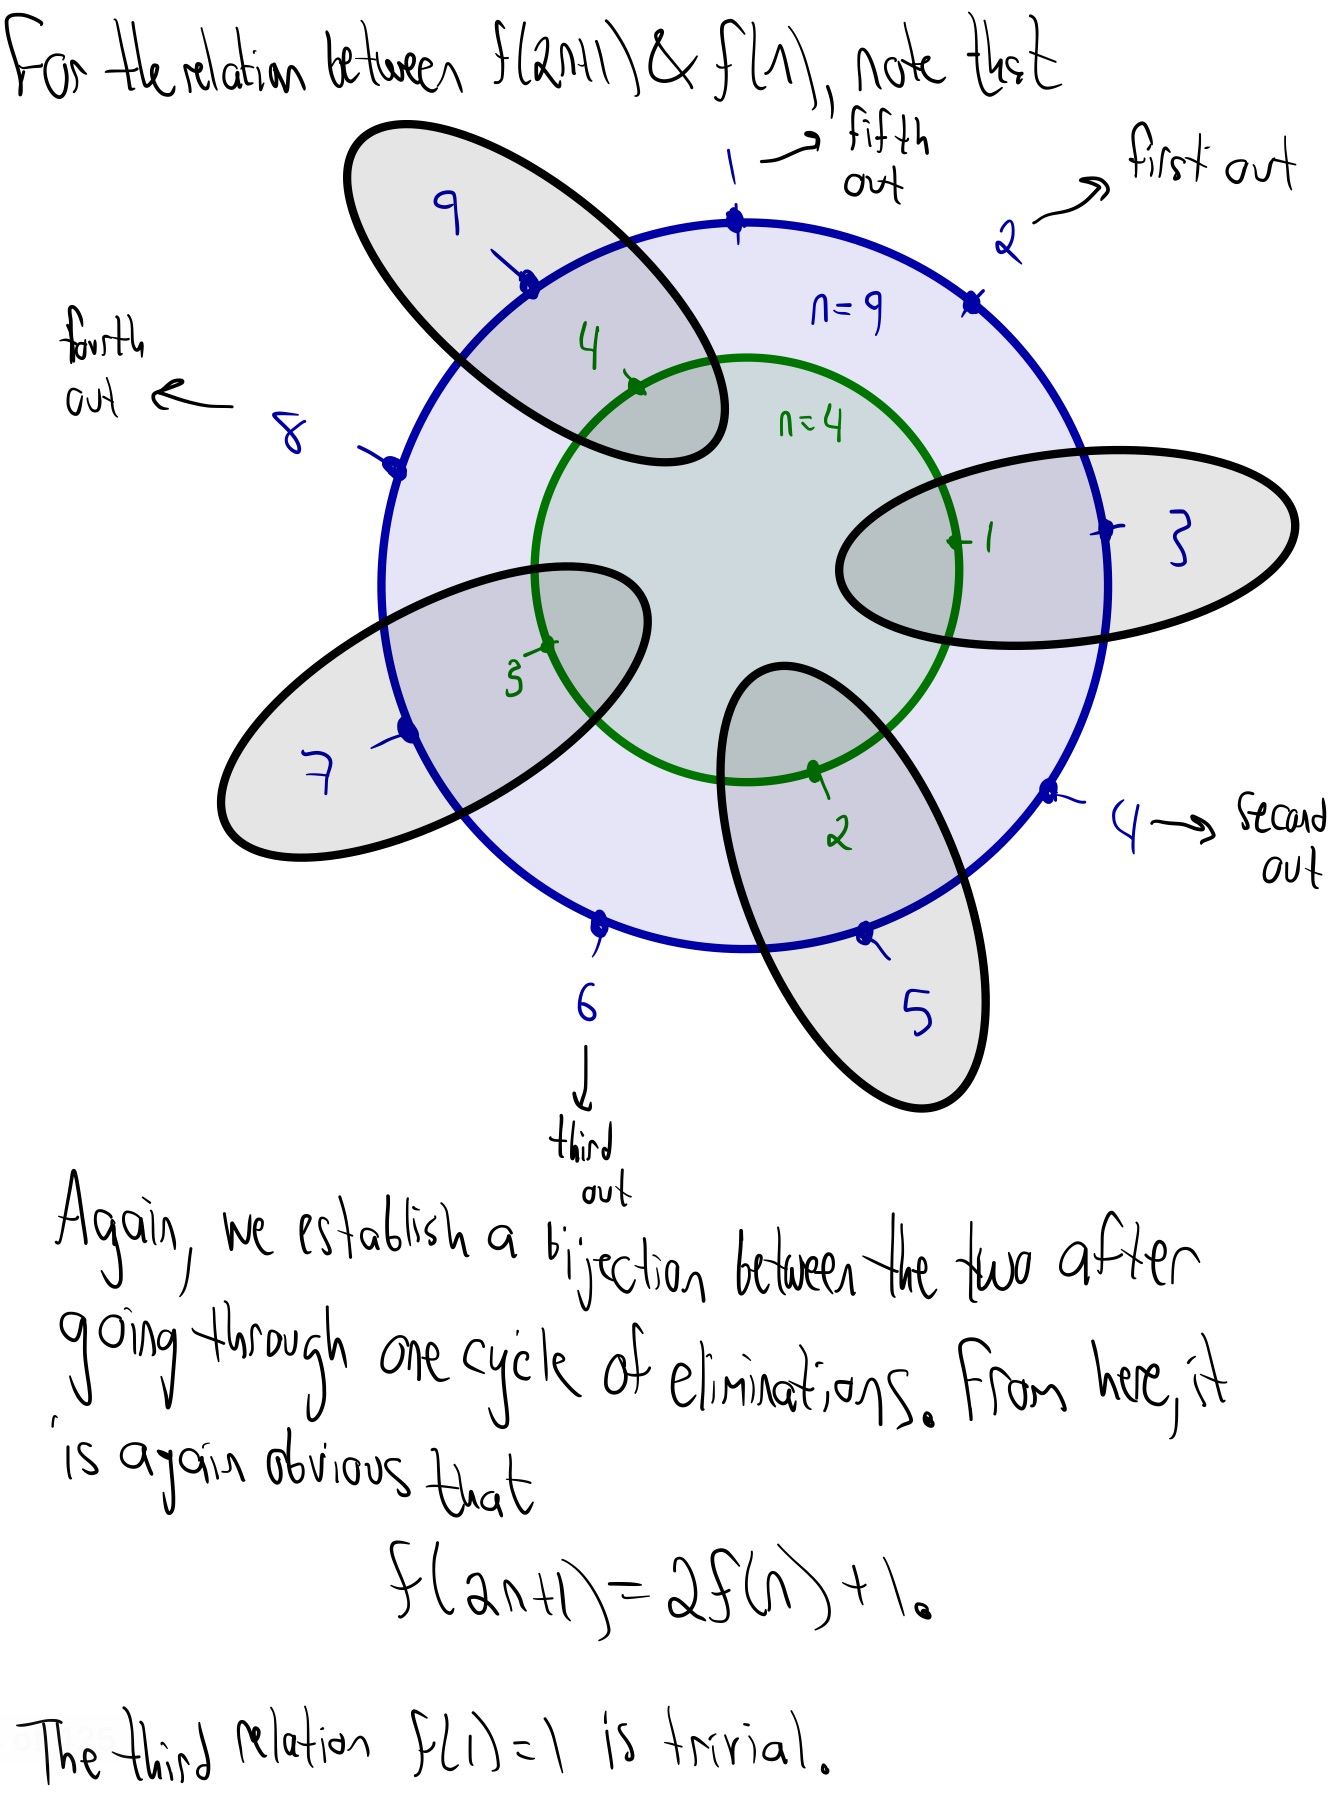 For the relation between f(2n+1) & f(n), note that
1 → fifth out
2 → first out
9
n=9
4
fourth out ←
8
n=4
1
3
3
7
2
4 → second out
5
6
↓
third out
Again, we establish a bijection between the two after
going through one cycle of eliminations. From here, it
is again obvious that
f(2n+1) = 2f(n) + 1.
The third relation f(1) = 1 is trivial.